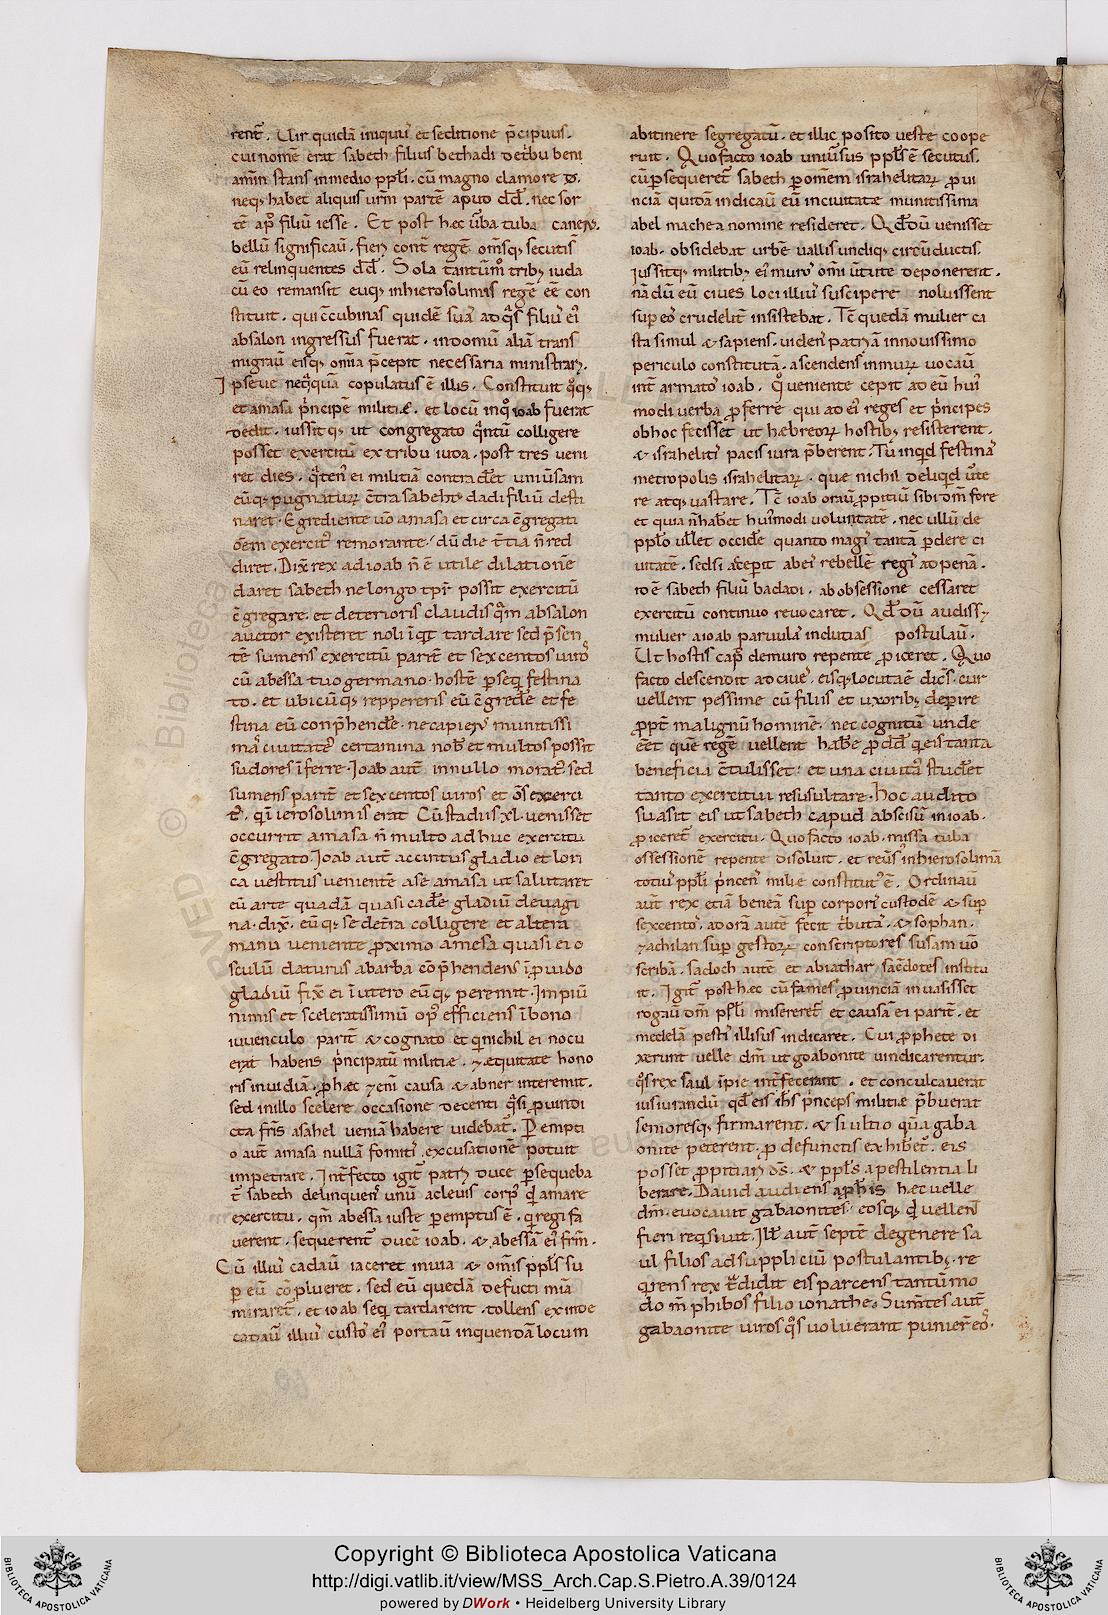 rent̃. Uir quidã iniquuꝰ et seditione p̃cipuus.
cui nom̃e erat sabeth filius bethadi de t̾bu beni
amin stans in medio pp̃li. cũ magno clamore
neq; habet aliquis ur̃m partẽ aput dd̃. nec sor
tẽ ap̾ filiũ iesse. Et post hec ũba tuba canens.
bellũ significauit̃. fieri cont̃ regẽ. om̃sq; secutis
eũ relinquentes dd̃. Sola tantũm̾ trib; iuda
cũ eo remansit euq; in hierosolimis regẽ eẽ con
stituit. qui c̃cubinas quidẽ suas ad q̾s filiuꝰ eiꝰ
absalon ingressus fuerat. in domũ aliã trans
migrauit̃ eisq; om̃ia p̃cepit necessaria ministrari.
Ipse ue neq̾quã copulatus ẽ illis. Constituit q̾q;
et amasa p̾ncipẽ militiæ. et locũ in q̾ ioab fuerat
dedit. iussit q; ut congregato q̾ntũ colligere
posset exercitũ ex tribu iuda. post tres ueni
ret dies. q̾ten̾ ei militiã contradẽt uniũsam
eũq; pugnaturũ c̃tra sabeht dadi filiũ desti
naret. Egrediente ũo amasa et circa c̃gregati
õem exercitꝰ remorante. dũ die t̃tia ñ red
diret. Dix̃ rex ad ioab ñ ẽ utile dilationẽ
daret sabeth ne longo tp̃r possit exercitũ
c̃gregare. et deterioris claudis q̾m absalon
auctor existeret noli ĩq̃t tardare sed p̃sen
tẽ sumens exercitũ parit̃ et sexcentos uiros
cũ abessa tuo germano. hostẽ p̃seq̾ festina
to. et ubicũq; reppereris eũ c̃gredẽ et fe
stina eũ conp̃hendẽ. ne capies munitissi
ma ciuitates certamina nob̃ et multos possit
sudores ĩferre. Ioab aut̃ in nullo moratꝰ. sed
sumens parit̃ et sexcentos uiros et õs exerci
tꝰ. q̾ ierosolimis erat Cũ stadiis xl. uenisset
occurrit amasa ñ multo adhuc exercitu
c̃gregato. Ioab aut̃ accintus gladio et lori
ca uestitus uenientẽ a se amasa ut salutaret
eũ arte quadã quasi cadẽ gladiũ deuagi
na. dix̃. eũq; se dext̃ra colligere et altera
manu ueniente p̃ximo amesa quasi ei o
sculũ daturus a barba cõp̃hendens ĩp̃uido
gladiũ fix̃ ei ĩ utero eũq; peremit. Impiũ
nimis et sceleratissimũ opꝰ efficiens ĩ bono
iuuenculo parit̃ et cognato et q̾ nichil ei nocu
erat habens p̾ncipatũ militiæ. et equitate hono
ris inuidiã. p̃ hæc etenĩ causa et abner interemit.
sed in illo scelere occasione decenti q̾si p̃ uindi
cta fr̃is asahel ueniã habere uidebat̃. P̃empti
o aut̃ amasa nullã fomitis excusationẽ potuit
impetrare. Int̃fecto igit̃ patris duce p̃sequeba
t̃ sabeth delinquens unũ a cleuis corpꝰ q̾ amare
exercitu. q̾m abessa iuste p̃emptus ẽ. q̾ regi fa
uerent. sequerent̃ ducẽ ioab. et abessã eiꝰ fr̃m.
Cũ illiuꝰ cadaũ iaceret in uia et om̃is pp̃ls su
p̃ eũ cõplueret. sed eũ quedã defucti miã
miraret̃. et ioab seq̾ tardarent. tollens exinde
cadaũ illiuꝰ custoꝰ eiꝰ portaũ in quendã locum
abitinere segregatũ. et illic posito ueste coope
ruit. Quo facto ioab uniũsus pp̃ls ẽ secutus.
cũ p̃sequeret̃ sabeth p̃ om̃em israhelitarũ p̃ui
nciã quidã indicaũ eũ in ciuitate munitissima
abel machea nomine resideret. Qd̃ dũ uenisset
ioab. obsidebat urbẽ uallis undiq; circũductis.
iussitq; militib; eiꝰ muros om̃i ũtute deponerent.
nã dũ eũ ciues loci illiuꝰ suscipere noluissent
sup eoꝰ crudelit̃ insistebat. Tc̃ quedã mulier ca
sta simul et sapiens. uidens patriã in nouissimo
periculo constitutã. ascendens in murũ uocaũ
int̃ armatos ioab. q̾ ueniente cepit ad eũ huiꝰ
modi uerba p̃ferre qui ad eiꝰ reges et p̾ncipes
ob hoc fecisset ut hæbreorũ hostib; resisterent.
et israhelitis pacis iura p̃berent. Tu inq̃d festinas
metropolis israhelitarũ. que nichil deliq̾d ũte
re atq; uastare. Tc̃ ioab orauit̃ p̃pitiũ sibi dm̃ fore
et quia ñ haberet huiꝰmodi uoluntatẽ. nec ullũ de
pplo uellet occidẽ quanto magis tantã p̃dere ci
uitatẽ. sed si acceperit abeis rebellẽ regis ad penã.
ro ẽ sabeth filiũ badadi. ab obsessione cessaret
exercitũ continuo reuocaret. Qd̃ dũ audiss;
mulier a ioab paruulas indutias postulaũ.
Ut hostis capꝰ de muro repente p̃iceret. Quo
facto descendit ad ciues. eisq; locuta ẽ dic̃s. cur
uellent pessime cũ filiis et uxorib; deperire
p̃pt̃ malignũ hominẽ. nec cognitũ unde
eẽt quẽ regẽ uellent habẽ p̃ dd̃ q̾ eis tanta
beneficia c̃tulisset. et una ciuitas studẽt
tanto exercitui resusultare. hoc audito
suasit eis ut sabeth capud abscisũ in ioab.
p̃iceret̃ exercitu. Quo facto ioab. missa tuba
ossessionẽ repente disoluit. et reũsꝰ in hierosolimã
totiuꝰ ppli p̾ncens milie constitutꝰ ẽ. Ordinaũ
aut̃ rex etiã beneã sup corporis custodẽ et sup
sexcentos. adorã autẽ fecit t̾buta. et sophan.
et achilan sup gestorũ conscriptores susam ũo
scribã. sadoch autẽ et abiathar sac̃dotes institu
it. Igit̃ post hæc cũ fames p̃uinciã inuasisset
rogaũ dm̃ ppli misereret̃ et causã ei parit̃. et
medelã pestis illisus indicaret. Cui p̃phete di
xerunt uelle dm̃ ut gabaonite uindicarentur.
q̾s rex saul ĩpie int̃fecerant. et conculcauerat
iusiurandũ qd̃ eis ih̃s p̾nceps militiæ p̃buerat
senioresq; firmarent. et si ultio q̾ña gaba
onite peterent. p̃ defunctis exhiberet̃. eis
posset p̃pitiari ds̃. et ppls a pestilentia li
berare. Dauid audiens a p̃phis hæc uelle
dm̃. euocauit gabaonites. eosq; q̾ uellens̃
fieri req̾siuit. Illi aut̃ septẽ de genere sa
ul filios ad suppliciũ postulantib;. re
q̾rens rex t̃didit eis parcens tantũmo
do m̃phibos filio ionathe. Sum̃tes aut̃
gabaonite uiros q̾s uoluerant punier̃ eoꝰ.
Copyright © Biblioteca Apostolica Vaticana
http://digi.vatlib.it/view/MSS_Arch.Cap.S.Pietro.A.39/0124
powered by DWork • Heidelberg University Library